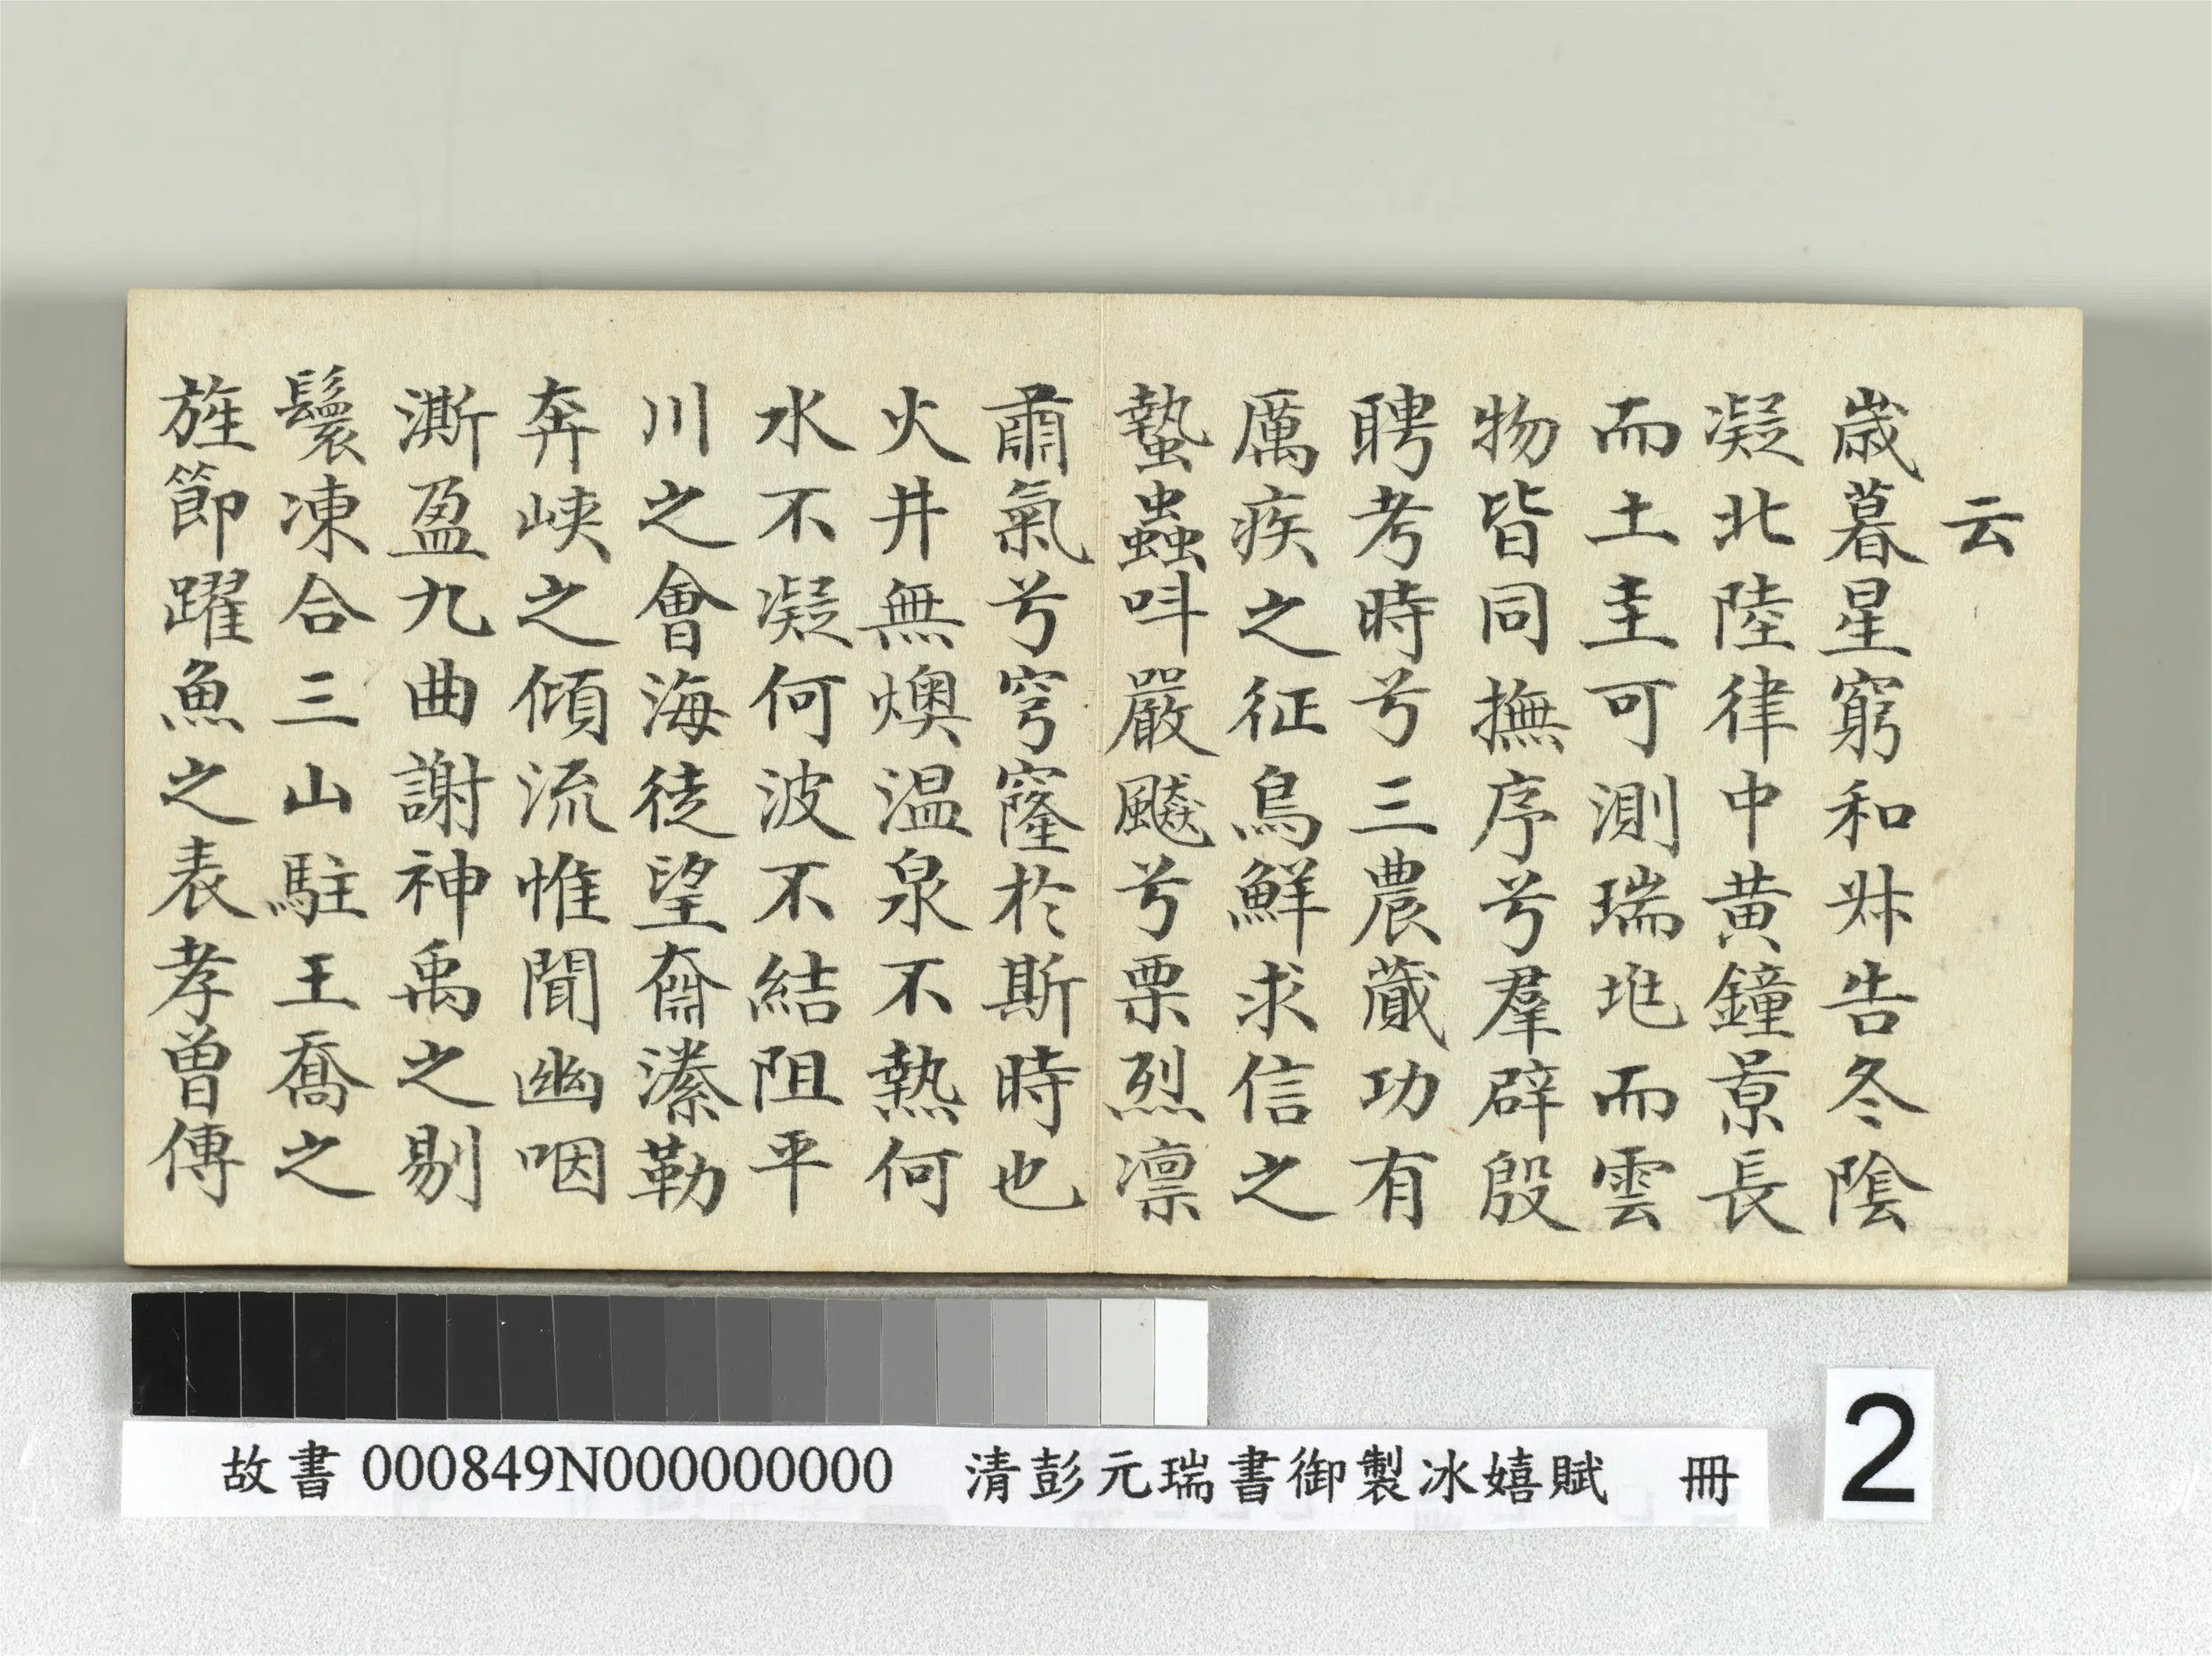 云
歲暮星窮和叔告冬陰
凝北陸律中黃鐘景長
而土圭可測瑞地而雲
物皆同撫序兮羣辟殷
聘考時兮三農蕆功有
厲疾之征鳥鮮求信之
蟄蟲叫嚴飈兮栗烈凛
肅氣兮穹窿於斯時也
火井無燠温泉不熱何
水不凝何波不結阻平
川之會海徒望齋潻勒
奔峽之傾流惟聞幽咽
澌盈九曲謝神禹之剔
鬟凍合三山駐王喬之
旌節躍魚之表孝曾傳
故書 000849N000000000 清彭元瑞書御製冰嬉賦 冊
2